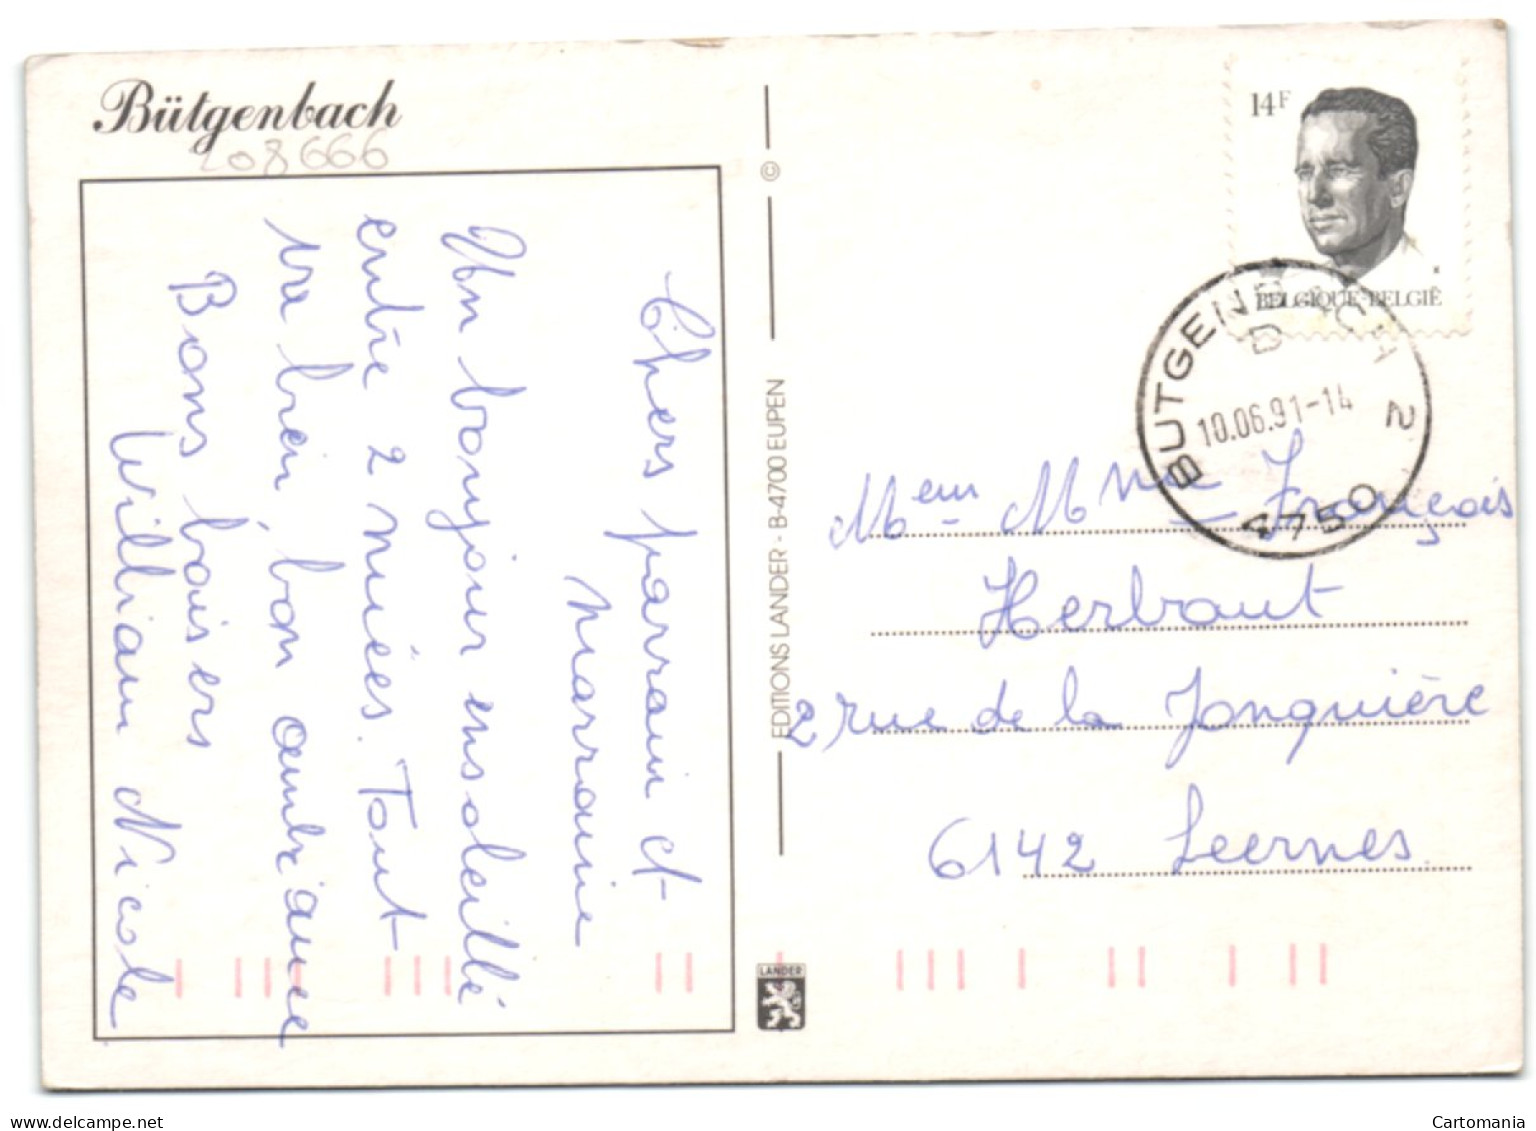 Bütgenbach
208666
Chers parrain et
marraine
Un bonjour ensoleillé
entre 2 nuées. Tout
va bien, bon ambiance
Bons baisers
William Nicole
©
EDITIONS LANDER - B-4700 EUPEN
LANDER
14F
BELGIQUE-BELGIË
BUTGENBACH 2
D
10.06.91-14
4750
M em Mme François
Herbaut
2 rue de la Jonquière
6142 Leernes
delcampe.net
Cartomania